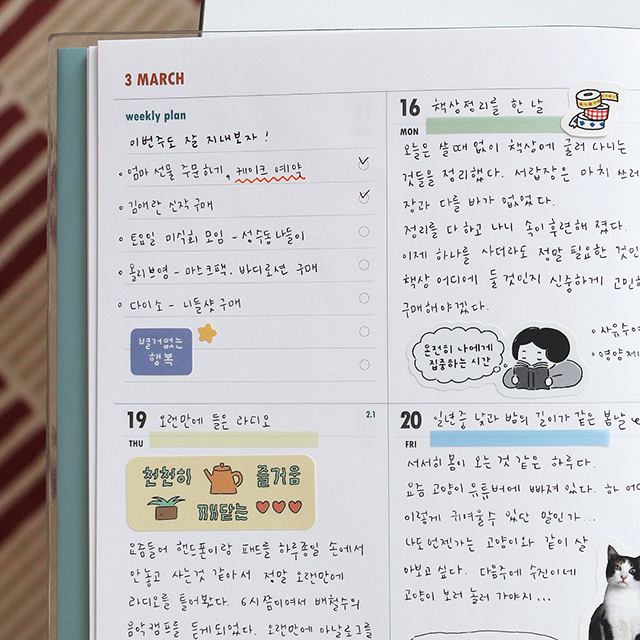 3 MARCH
weekly plan
이번주도 잘 지내보자!
• 엄마 선물 주문하기, 케이크 예약
• 김애란 신작 구매
• 토요일 미식회 모임 - 성수동나들이
• 올리브영 - 마스크팩, 바디로션 구매
• 다이소 - 니들샷 구매
별거없는
행복
16 책상정리를 한 날
MON
오늘은 쓸 때 없이 책상에 굴러 다니는
것들을 정리했다. 서랍장은 마치 쓰레
장과 다를 바가 없었다.
정리를 다 하고 나니 속이 후련해 졌다.
이제 하나를 사더라도 정말 필요한 것인
책상 어디에 둘 것인지 신중하게 고민하
구매해야겠다.
온전히 나에게
집중하는 시간
• 자유수영
• 영양제
19 오랜만에 들은 라디오
2.1
THU
천천히 즐거움
깨닫는
요즘들어 핸드폰이랑 패드를 하루종일 손에서
안놓고 사는것 같아서 정말 오랜만에
라디오를 틀어봤다. 6시쯤이여서 배철수의
음악캠프를 듣게되었다. 오랜만에 아날로그를
20 일년중 낮과 밤의 길이가 같은 봄날
FRI
서서히 봄이 오는 것 같은 하루다.
요즘 고양이 유튜버에 빠져 있다. 하 어
이렇게 귀여울수 있단 말인가...
나도언젠가는 고양이와 같이 살
아보고 싶다. 다음주에 수진이네
고양이 보러 놀러 가야지...